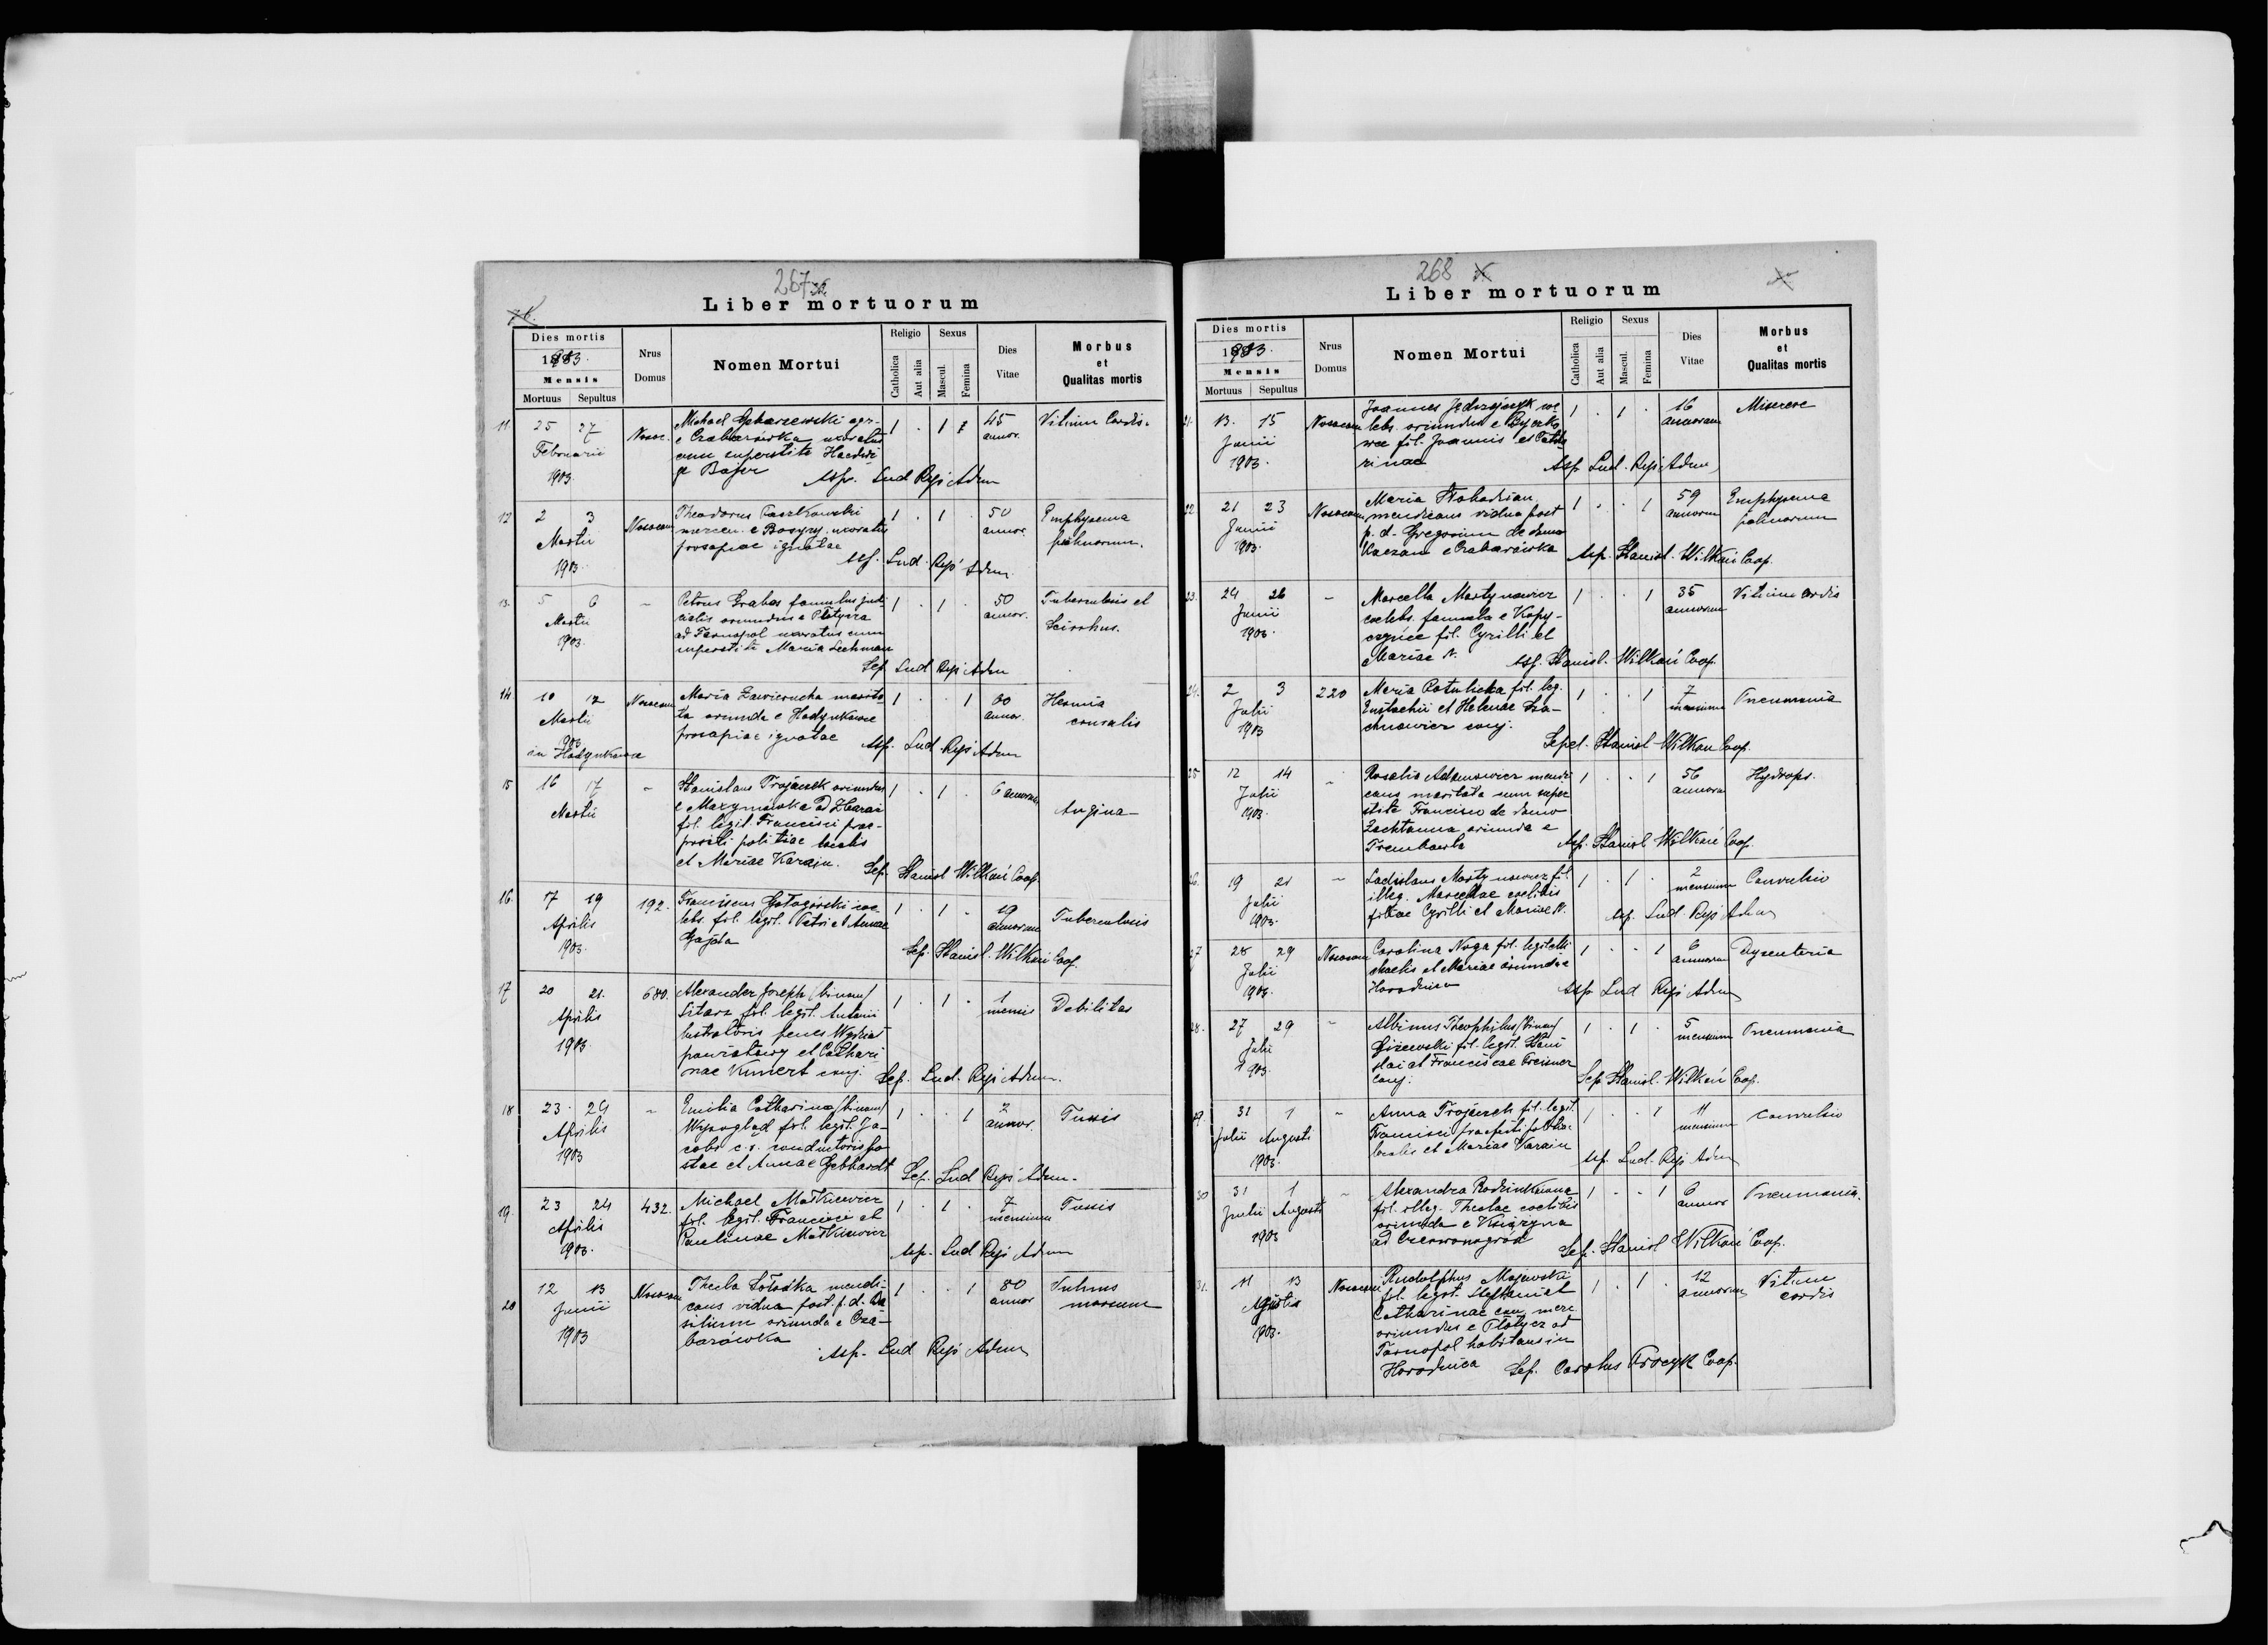 267
Liber mortuorum
Dies mortis
1903.
Mensis
Mortuus Sepultus
Nrus Domus
Nomen Mortui
Religio
Catholica
Aut alia
Sexus
Mascul.
Femina
Dies Vitae
Morbus et Qualitas mortis
11 25 27 Nosoc. Michael agr. 1 . 1 45 Vitium Cordis.
Februarii e Czabarówka uxoratus annor.
1903. cum superstite Hedwi-
ge Bajer Asp. Lud Reji Adm
12 2 3 Nosocom Theodorus Paszkowski 1 . 1 . 50 Emphysema
Martii mercen. e Bosyry uxoratus annor. pulmorum.
1903. prosapiae ignotae Asp. Lud. Reji Adm
13. 5 6 – Petrus Grabas famulus judi- 1 . 1 . 50 Tuberculosis et
Martii cialis oriundus e Płotycza annor. Scirrhus.
1903. ad Tarnopol uxoratus cum
superstite Maria Lechman
Sep Lud Reji Adm
14 10 12 Nosocom Maria Zawierucha marita- 1 . . 1 60 Hernia
Martii ta oriunda e Hadynkowce annor. cruralis
1903 prosapiae ignotae Asp. Lud. Reji Adm
in Hadynkowce
15 16 17 – Stanislaus Trojaczek oriundus 1 . 1 . 6 annorum Angina
Martii e Maxymówka ad Zbaraż
fil. legit. Francisci prae-
positi politiae localis
et Mariae Karain. Sep. Stanisl Wilkoń Coop.
16. 17 19 192. Franciscus Gołogórski coe- 1 . 1 . 19 Tuberculosis
Aprilis lebs. fil. legit. Petri et Annae annorum
1903. Gajda Sep. Stanisl. Wilkoń Coop.
17 20 21. 680. Alexander Joseph (binom) 1 . 1 . 1 Debilitas
Aprilis Sitarz fil. legit. Antonii mensis
1903. lustratoris penes Wydział
powiatowy et Cathari-
nae Kunert conj. Sep. Lud. Reji Adm.
18 23 24 – Emilia Catharina (binom) 1 . . 1 2 Tussis
Aprilis fil. legit. Ja- annor.
1903 cobi c.r. conductoris po-
stae et Annae Gebhardt Sep. Lud Reji Adm.
19. 23 24 432. Michael Matkiewicz 1 . 1 . 7 Tussis
Aprilis fil. legit. Francisci et mensium
1903. Paulinae Matkiewicz Asp. Lud Reji Adm
20 12 13 Nosocom Thecla Łotocka mendi- 1 . . 1 80
Junii cans vidua post p. d. Ba- annor
1903 silium oriunda e Cza-
barówka Asp. Lud Reji Adm
268
Liber mortuorum
Dies mortis
1903.
Mensis
Mortuus Sepultus
Nrus Domus
Nomen Mortui
Religio
Catholica
Aut alia
Sexus
Mascul.
Femina
Dies Vitae
Morbus et Qualitas mortis
21. 13. 15 Nosocom Joannes Jędrzejczyk coe- 1 . 1 . 16 Miserere
Junii lebs. oriundus e annorum
1903. fil. Joannis et Catha-
rinae Asp Lud. Reji Adm
22 21 23 Nosocom Maria 1 . . 1 59 Emphysema
Junii mendicans vidua post annorum pulmorum
1903. p. d. Gregorium de domo
Kaczan e Czabarówka Asp. Stanisl. Wilkoń Coop.
23. 24 26 – Marcella Martynowicz 1 . . 1 35 Vitium cordis
Junii coelebs. famula e Kopy- annorum
1903. czyńce fil. Cyrilli et
Mariae N. Asp. Stanisl. Wilkoń Coop.
24. 2 3 220 Maria Potulicka fil. leg. 1 . . 1 7 Pneumonia
Julii Eustachii et Helenae Sza- mensium
1903 chnowicz conj. Sepel. Stanisl Wilkoń Coop.
25 12 14 – Rosalia Adamowicz mendi- 1 . . 1 56 Hydrops.
Julii cans maritata cum super- annorum
1903. stite Francisco de domo
oriunda e
Trembowla Asp. Stanisl Wilkoń Coop.
26. 19 21 – Ladislaus Martynowicz fil. 1 . 1 . 2 Convulsio
Julii illeg. Marcellae coelibis mensium
1903. filiae Cyrilli et Mariae N. Asp. Lud Reji Adm
27 28 29 Nosocom Carolina Noga fil. legit. Mi- 1 . . 1 6 Dysenteria
Julii chaelis et Mariae oriunda e annorum
1903. Horodnica Asp Lud Reji Adm
28. 27 29 – Albinus Theophilus (binom) 1 . 1 . 5 Pneumonia
Julii Giżewski fil. legit. Stani- mensium
1903. slai et Franciscae Preisner
conj. Sep Stanisl. Wilkoń Coop.
29. 31 1 – Anna Trojaczek fil. legit. 1 . . 1 11 Convulsio
Julii Augusti Francisci praefecti politiae mensium
1903. localis et Mariae Karain Asp. Lud. Reji Adm
30 31 1 – Alexandra 1 . . 1 6 Pneumonia.
Julii Augusti fil. illeg. Theclae coelibis annor
1903 oriunda e
ad Czerwonogród Sep. Stanisl Wilkoń Coop.
31. 11 13 Nosocom Rudolphus Majewski 1 . 1 . 12 Vitium
Agustis fil. legit. Stephani et annorum cordis
1903. Catharinae conj. merc
oriundus e Płotycz ad
Tarnopol habitans in
Horodnica Sep. Carolus Procyk Coop.